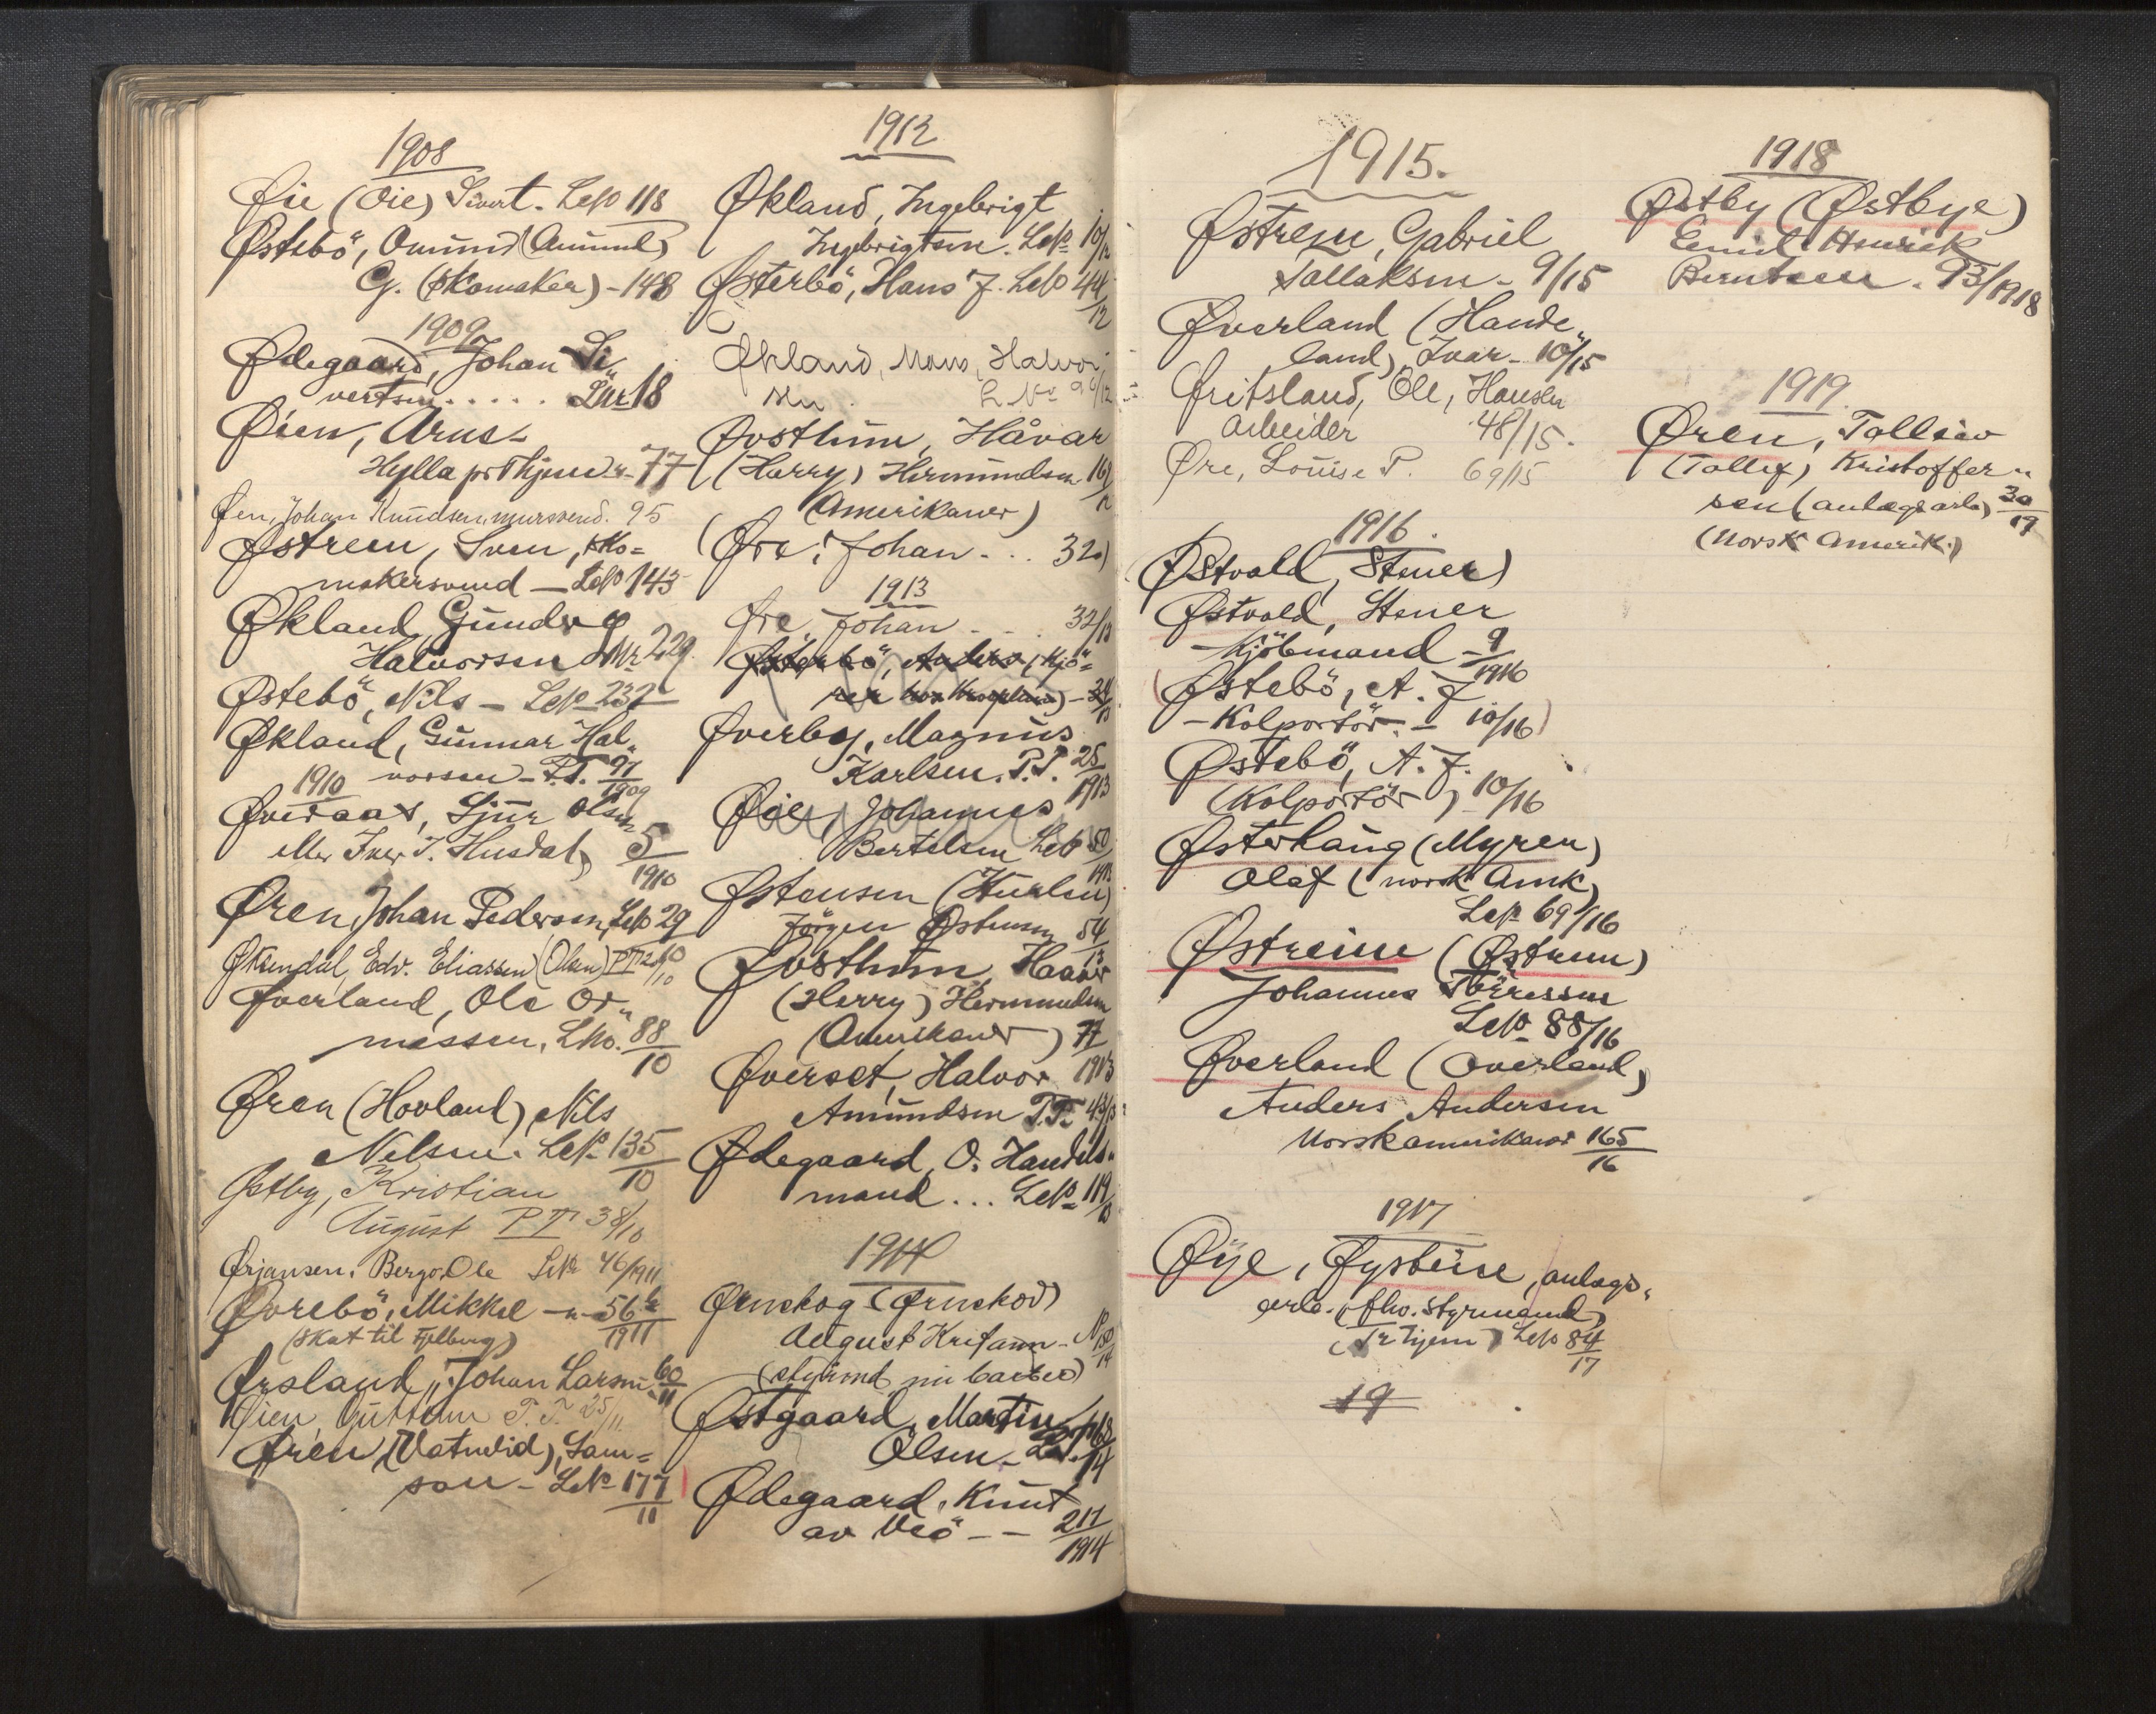 1908
Øie (Oie) Sivert. LNo 118
Østebö, Omund (Aumund)
G. (skomaker) - 148
1909
Ødegaard, Johan Si„
vertsen..... LNr 18
Øien, Arne -
Hylla pr Thjem - 77
Øen, Johan Knudsen, mursvend. 95
Østrem, Sven, sko=
makersvend - LNo 143
Økland, Gunder
Halvorsen Nr 229
Østebö, Nils - LNo 232
Økland, Gunnar Hal„
vorsen - P.T. 97/1909
1910
Øveraas, Sjur Olsen
eller Iver I. Husdal) 5/1910
Øren, Johan Pedersen, LNo 29
Øksendal, Edv. Eliassen (Olsen) PT
Øverland, Ole Or„
massen, LNo. 88/10
Øren (Hovland), Nils
Nelsen. LNo 135/10
Østby, Kristian
August PT 38/10
Ørjansen, Bergo. Ole LNo 46/1911
Øvrebö, Mikkel - 56/1911
(skat til Fjelberg)
Ørsland, Johan Larsen 60/11
Øien, Guttorm P.T. 25/11
Øren (Vatnelid), Sam=
son - LNo 177/11
1912
Økland, Ingebrigt
Ingebrigtsen. LNo 10/12
Østerbö, Hans J. LNo 44/12
Økland, Mons, Halvor
sen. L.No
Øvsthun, Håvar
(Harry) Hermundsen
(Amerikaner)
(Øre, Johan - .. 32)
1913
Øre, Johan - - . 32/13
Østerbö, Anders (kjö=
rer hos
Øverby, Magnus
Karlsen. P.T. 25/1913
Øie, Johannes
Bertelsen LNo 50/1913
Østensen
Jörgen Østensen 54/13
Øvsthun, Haavar
(Harry) Hermundsen
(Amerikaner) 77/1913
Øverset, Halvor
Amundsen P.T. 43/13
Ødegaard, O. Handels„
mand ... LNo 119/13
1914
Ørnskog (Ørnskov)
August Kristian -
(styrmd nu barber)
Østgaard, Martin
Olsen -
Ødegaard, Knut
av Veö - - 217/1914
1915.
Østrem, Gabriel
Tallaksen - 9/15
Øverland (Hande„
land), Ivar - 10/15
Øritsland, Ole, Hansen
Arbeider 48/15.
Øre, Louise P. 69/15
1916.
(Østvold, Stener)
Østvold, Stener
- Kjöbmand - 9/1916
(Østebö, A. J.
- Kolportör - 10/16)
Østebö, A. J.
(Kolportör) 10/16
Østerhaug (Myren)
Olaf (norsk Amk)
LNo 69/16
Østreim (Østrem)
Johannes
LNo 88/16
Øverland (Overland)
Anders Andersen
Norskamerikaner 165/16
1917
Øye, Øystein, anlægs„
arb. (fhv. styrmand)
LNo 84/17
19
1918
Østby (Østbye)
Emil Henrick
Berntsen. 93/1918
1919.
Øren, Tolleiv
(Tollef) Kristoffer„
sen (anlægsarb) 30/19
(Norsk Amerik.)